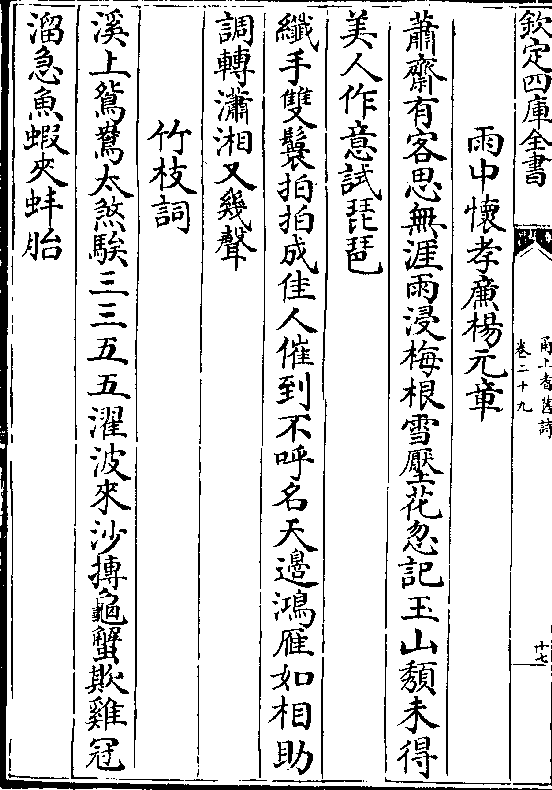 欽定四庫全書
甬上耆舊詩
卷二十九
十七
雨中懷孝廉楊元章
蕭齋有客思無涯雨浸梅根雪壓花忽記玉山頹未得
美人作意試琵琶
纖手雙鬟拍拍成佳人催到不呼名天邊鴻雁如相助
調轉瀟湘又幾聲
竹枝詞
溪上鴛鴦太煞騃三三五五濯波來沙摶龜蟹欺雞冠
溜急魚蝦夾蚌胎